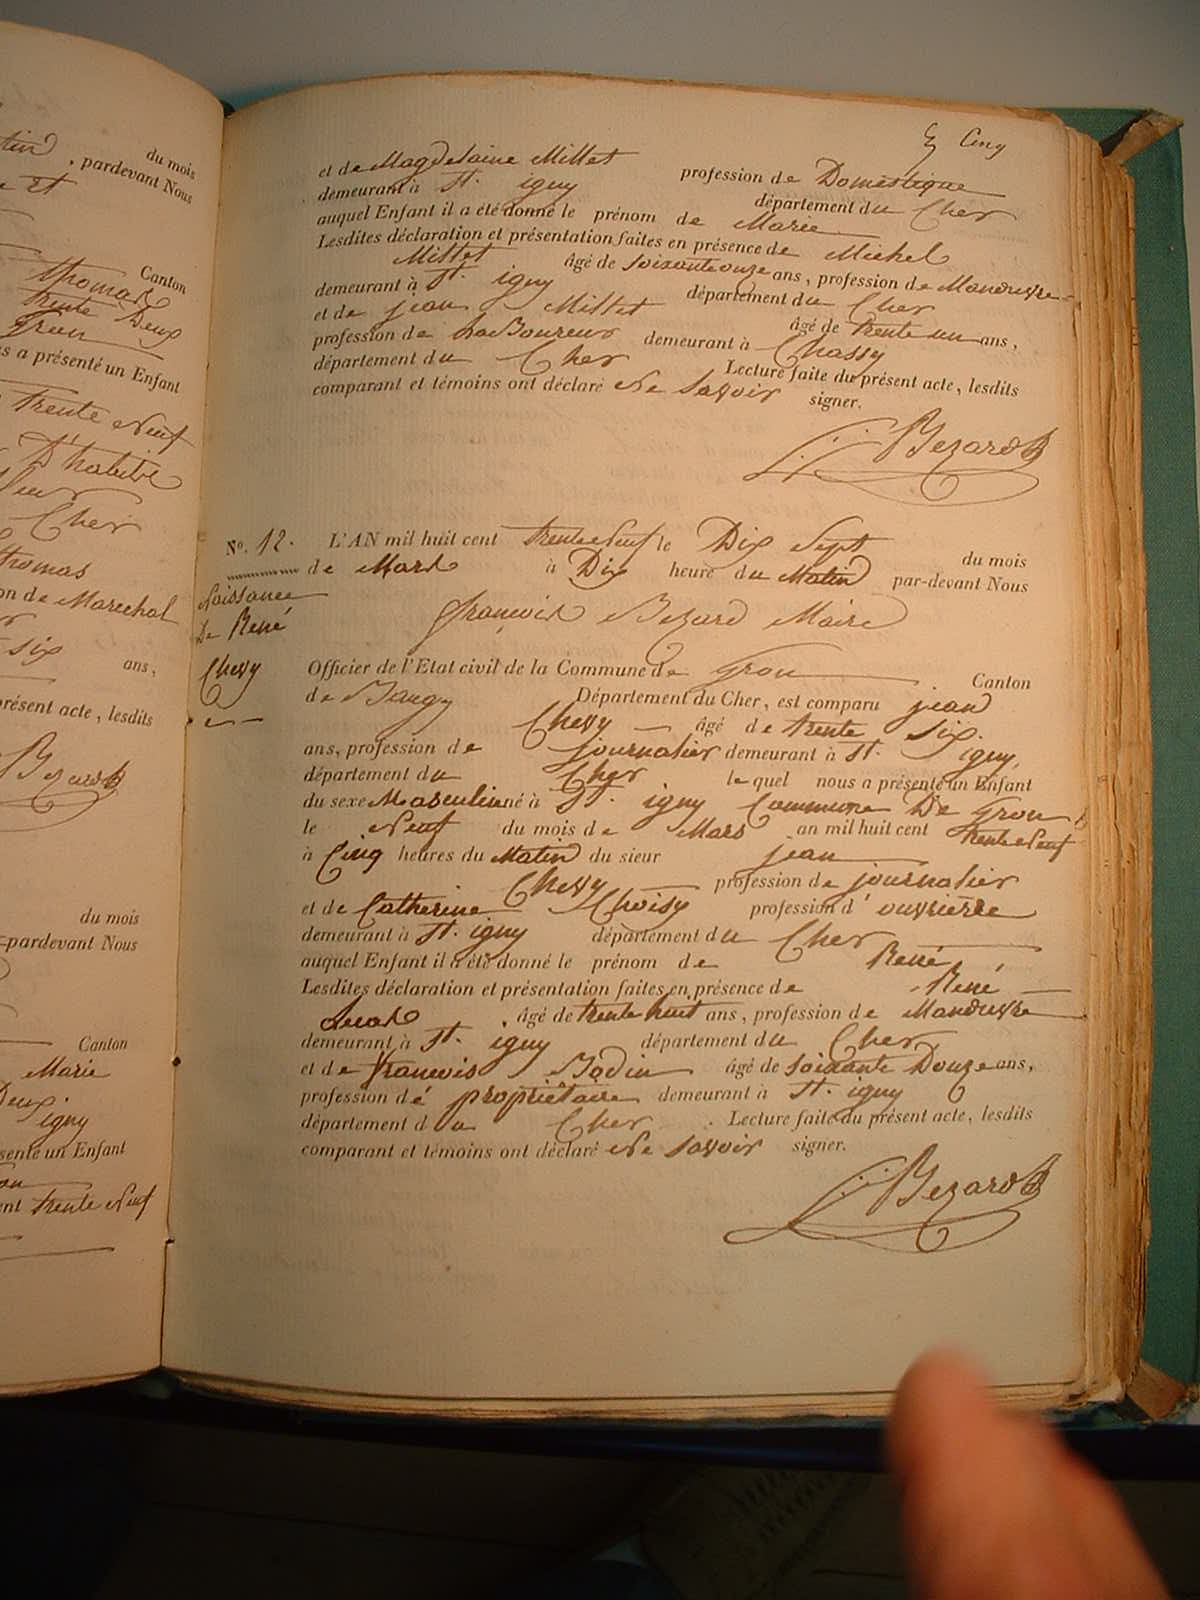 tin
du mois
, pardevant Nous
e Et
Canton
thomas
trente Deux
Gron
s a présenté un Enfant
trente Neuf
D'habite
Cher
thomas
on de Marechal
six ans,
résent acte, lesdits
Bezard
du mois
pardevant Nous
Canton
Marie
Deux
igny
senté un Enfant
ent trente Neuf
Cinq
et de Magdelaine Millet profession de Domestique
demeurant à St. igny département du Cher
auquel Enfant il a été donné le prénom de Marie
Lesdites déclaration et présentation faites en présence de Michel
Millet âgé de soixante onze ans, profession de Manœuvre
demeurant à St. igny département du Cher
et de jean Millet âgé de trente un ans,
profession de Laboureur demeurant à Chassy
département du Cher Lecture faite du présent acte, lesdits
comparant et témoins ont déclaré Ne savoir signer.
Bezard
No. 12. L'AN mil huit cent trente Neuf le Dix Sept du mois
de Mars à Dix heure du Matin par-devant Nous
Naissance
De René
Chevy
françois Bezard Maire
Officier de l'Etat civil de la Commune de Gron Canton
de Baugy Département du Cher, est comparu jean
Chevy âgé de trente six
ans, profession de journalier demeurant à St. igny,
département du Cher lequel nous a présenté un Enfant
du sexe Masculin né à St. igny Commune De Gron
le Neuf du mois de Mars an mil huit cent trente Neuf
à Cinq heures du Matin du sieur jean
Chevy profession de journalier
et de Catherine Choisy profession d'ouvrierre
demeurant à St. igny département du Cher
auquel Enfant il a été donné le prénom de René
Lesdites déclaration et présentation faites en présence de René
âgé de trente huit ans, profession de Manœuvre
demeurant à St. igny département du Cher
et de francois Bodin âgé de soixante Douze ans,
profession dé propriétaire demeurant à St. igny
département du Cher. Lecture faite du présent acte, lesdits
comparant et témoins ont déclaré Ne savoir signer.
Bezard